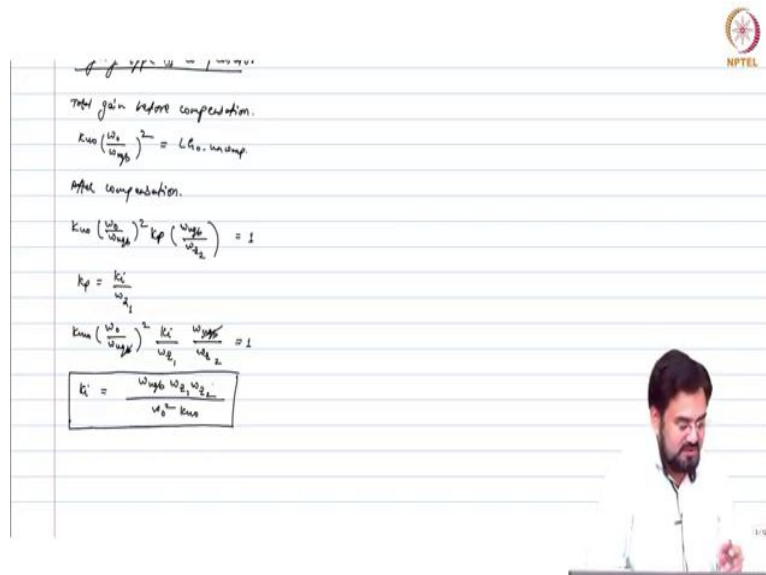 NPTEL
Total gain before compensation.
Kuo (ω₀/ωugb)² = LG₀. uncomp.
After compensation.
Kuo (ω₀/ωugb)² Kp (ωugb/ωz₂) = 1
Kp = Ki/ωz₁
Kuo (ω₀/ωugb)² Ki/ωz₁ ωugb/ωz₂ = 1
Ki = ωugb ωz₁ ωz₂ / ω₀² Kuo